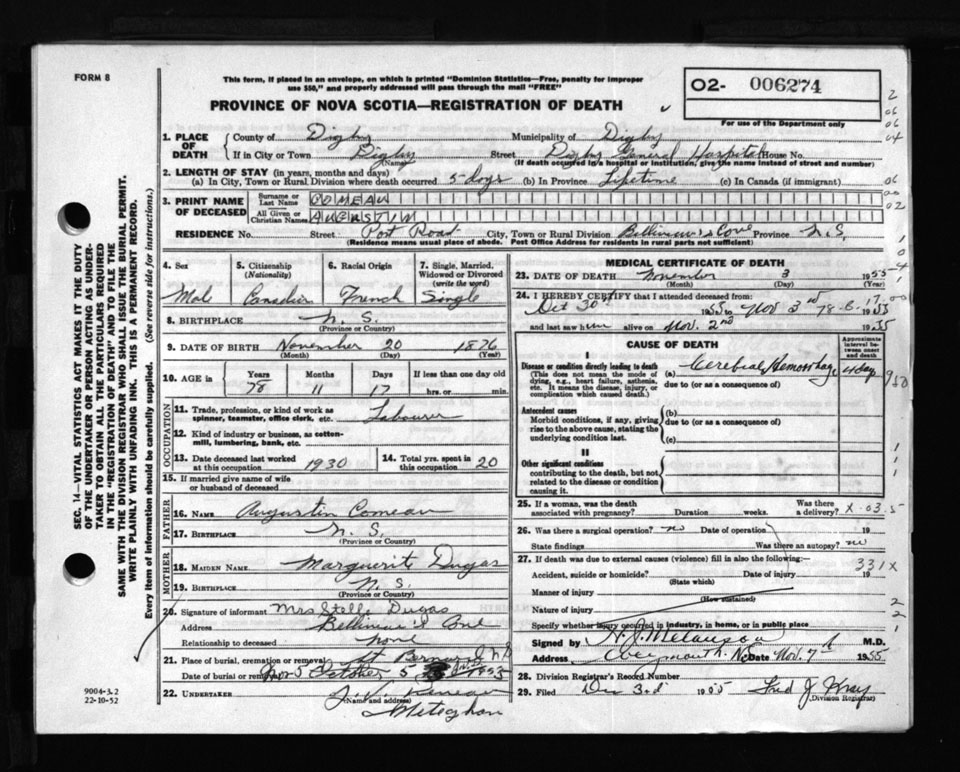 FORM 8
This form, if placed in an envelope, on which is printed "Dominion Statistics—Free, penalty for improper
use $50," and properly addressed will pass through the mail "FREE"
02- 006274
For use of the Department only
PROVINCE OF NOVA SCOTIA—REGISTRATION OF DEATH
1. PLACE OF DEATH County of Digby Municipality of Digby
If in City or Town Digby Street Digby General Hospital House No.
(Name) (If death occurred in a hospital or institution, give the name instead of street and number)
2. LENGTH OF STAY (in years, months and days)
(a) In City, Town or Rural Division where death occurred 5 days (b) In Province Lifetime (c) In Canada (if immigrant)
3. PRINT NAME OF DECEASED Surname or Last Name COMEAU
All Given or Christian Names AUGUSTIN
RESIDENCE No. Street Post Road City, Town or Rural Division Belliveau's Cove Province N.S.
(Residence means usual place of abode. Post Office Address for residents in rural parts not sufficient)
4. Sex Mal
5. Citizenship (Nationality) Canadian
6. Racial Origin French
7. Single, Married, Widowed or Divorced (write the word) Single
8. BIRTHPLACE N.S.
(Province or Country)
9. DATE OF BIRTH November 20 1876
(Month) (Day) (Year)
10. AGE in Years Months Days If less than one day old
78 11 17 hrs. or min.
OCCUPATION
11. Trade, profession, or kind of work as spinner, teamster, office clerk, etc. Labourer
12. Kind of industry or business, as cotten-mill, lumbering, bank, etc.
13. Date deceased last worked at this occupation 1930
14. Total yrs. spent in this occupation 20
15. If married give name of wife or husband of deceased
FATHER
16. Name Augustin Comeau
17. Birthplace N.S.
(Province or Country)
MOTHER
18. Maiden Name Marguerit Dugas
19. Birthplace N.S.
(Province or Country)
20. Signature of informant Mrs Stella Dugas
Address Belliveau's Cove
Relationship to deceased none
21. Place of burial, cremation or removal St Bernard N.S
Date of burial or removal Nov 5 October 5
22. UNDERTAKER
(Name and address)
Meteghan
MEDICAL CERTIFICATE OF DEATH
23. DATE OF DEATH November 3 1955
(Month) (Day) (Year)
24. I HEREBY CERTIFY that I attended deceased from:
Oct 30 1955 to Nov 3rd 1955
and last saw him alive on Nov. 2nd 1955
CAUSE OF DEATH
Approximate interval between onset and death
I
Disease or condition directly leading to death
(This does not mean the mode of dying, e.g., heart failure, asthenia, etc. It means the disease, injury, or complication which caused death.)
(a) Cerebral Hemorrhage 4 day
due to (or as a consequence of)
Antecedent causes
Morbid conditions, if any, giving rise to the above cause, stating the underlying condition last.
(b)
due to (or as a consequence of)
(c)
II
Other significant conditions
contributing to the death, but not related to the disease or condition causing it.
25. If a woman, was the death associated with pregnancy? Duration weeks. Was there a delivery?
26. Was there a surgical operation? no Date of operation 19
State findings Was there an autopsy? no
27. If death was due to external causes (violence) fill in also the following:
331X
Accident, suicide or homicide? Date of injury 19
(State which)
Manner of injury
(How sustained)
Nature of injury
Specify whether injury occurred in industry, in home, or in public place
Signed by H. J. Melanson M.D.
Address Weymouth. N.S. Date Nov. 7 1955
28. Division Registrar's Record Number
29. Filed Dec 3rd 1955 Fred J Wray
(Division Registrar)
9004-3.2
22-10-52
SEC. 14—VITAL STATISTICS ACT MAKES IT THE DUTY
OF THE UNDERTAKER OR PERSON ACTING AS UNDER-
TAKER TO OBTAIN ALL THE PARTICULARS REQUIRED
IN THE "REGISTRATION OF DEATH" AND TO FILE THE
SAME WITH THE DIVISION REGISTRAR WHO SHALL ISSUE THE BURIAL PERMIT.
WRITE PLAINLY WITH UNFADING INK. THIS IS A PERMANENT RECORD.
Every item of information should be carefully supplied. (See reverse side for instructions.)